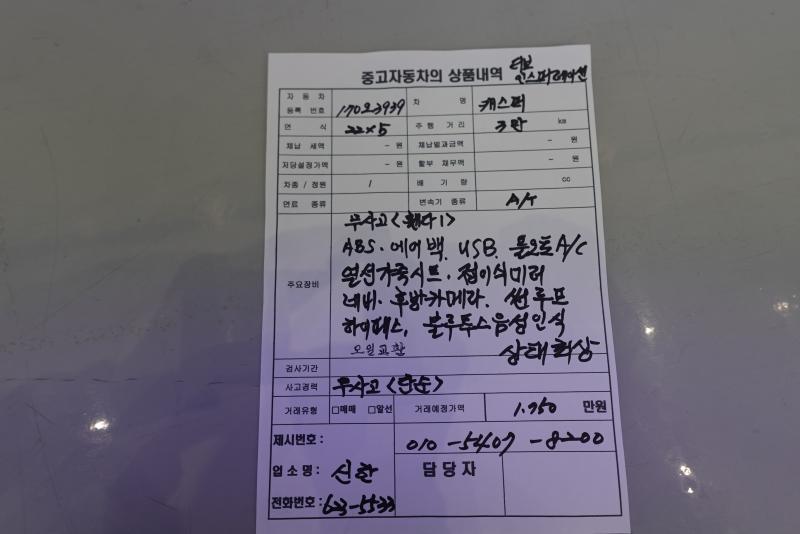 중고자동차의 상품내역 터보
인스퍼레이션
자동차 등록 번호 170오3939 차 명 캐스퍼
연 식 22×5 주행 거리 3만 km
체납 세액 - 원 체납벌과금액 - 원
저당설정가액 - 원 할부 채무액 - 원
차종 / 정원 / 배 기 량 cc
연료 종류 변속기 종류 A/T
주요장비
무사고<휀다1>
ABS. 에어백, USB. 풀오토A/C
열선가죽시트. 접이식미러
네비. 후방카메라. 썬루프
하이패스, 블루투스음성인식
오일교환 상태최상
검사기간
사고경력 무사고<단순>
거래유형 □매매 □알선 거래예정가액 1.750 만원
제시번호: 010-5407-8200
업 소 명: 신한 담 당 자
전화번호: 623-5533